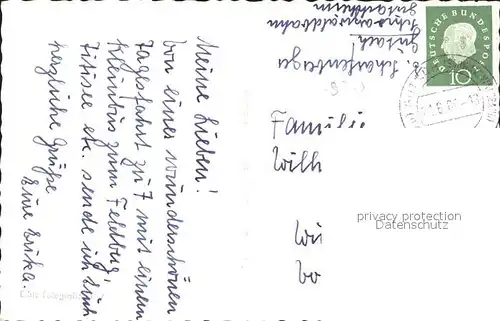 Meine Lieben!
Von einer wunderschönen
Tagesfahrt zu 7 mit einem
Kleinbus zum Feldberg,
Titisee etc. sende ich Euch
herzliche Grüße
Eure Erika.
Gutach!
Schwarzwaldbahn
DEUTSCHE BUNDESPOST
10
Familie
Will
Wü
bo
privacy protection
Datenschutz